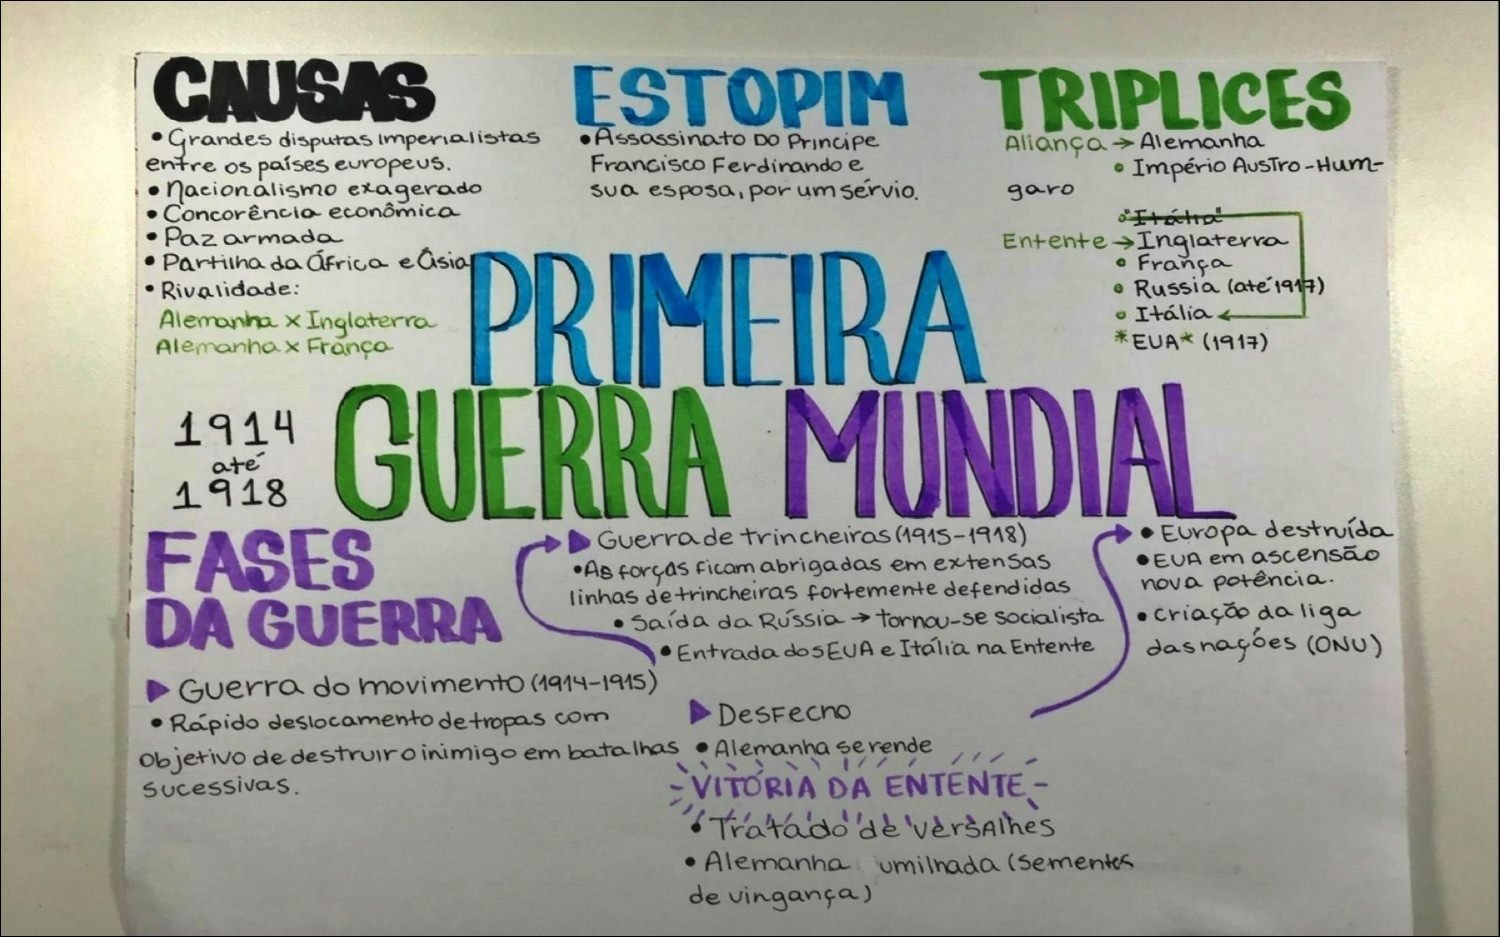 CAUSAS
• Grandes disputas imperialistas
entre os países europeus.
• Nacionalismo exagerado
• Concorência econômica
• Paz armada
• Partilha da África e Ásia
• Rivalidade:
Alemanha x Inglaterra
Alemanha x França
ESTOPIM
• Assassinato do Principe
Francisco Ferdinando e
sua esposa, por um sérvio.
TRIPLICES
Aliança → Alemanha
• Império Austro-Hum-
garo
• "Itália"
Entente → Inglaterra
• França
• Russia (até 1917)
• Itália
*EUA* (1917)
PRIMEIRA
GUERRA MUNDIAL
1914
até
1918
FASES
DA GUERRA
▶ Guerra do movimento (1914-1915)
• Rápido deslocamento de tropas com
objetivo de destruir o inimigo em batalhas
sucessivas.
▶ Guerra de trincheiras (1915-1918)
• As forças ficam abrigadas em extensas
linhas de trincheiras fortemente defendidas
• Saída da Rússia → tornou-se socialista
• Entrada dos EUA e Itália na Entente
▶ Desfecho
• Alemanha se rende
- VITÓRIA DA ENTENTE -
• Tratado de Versalhes
• Alemanha umilhada (sementes
de vingança)
• Europa destruída
• EUA em ascensão
nova potência.
• Criação da liga
das nações (ONU)